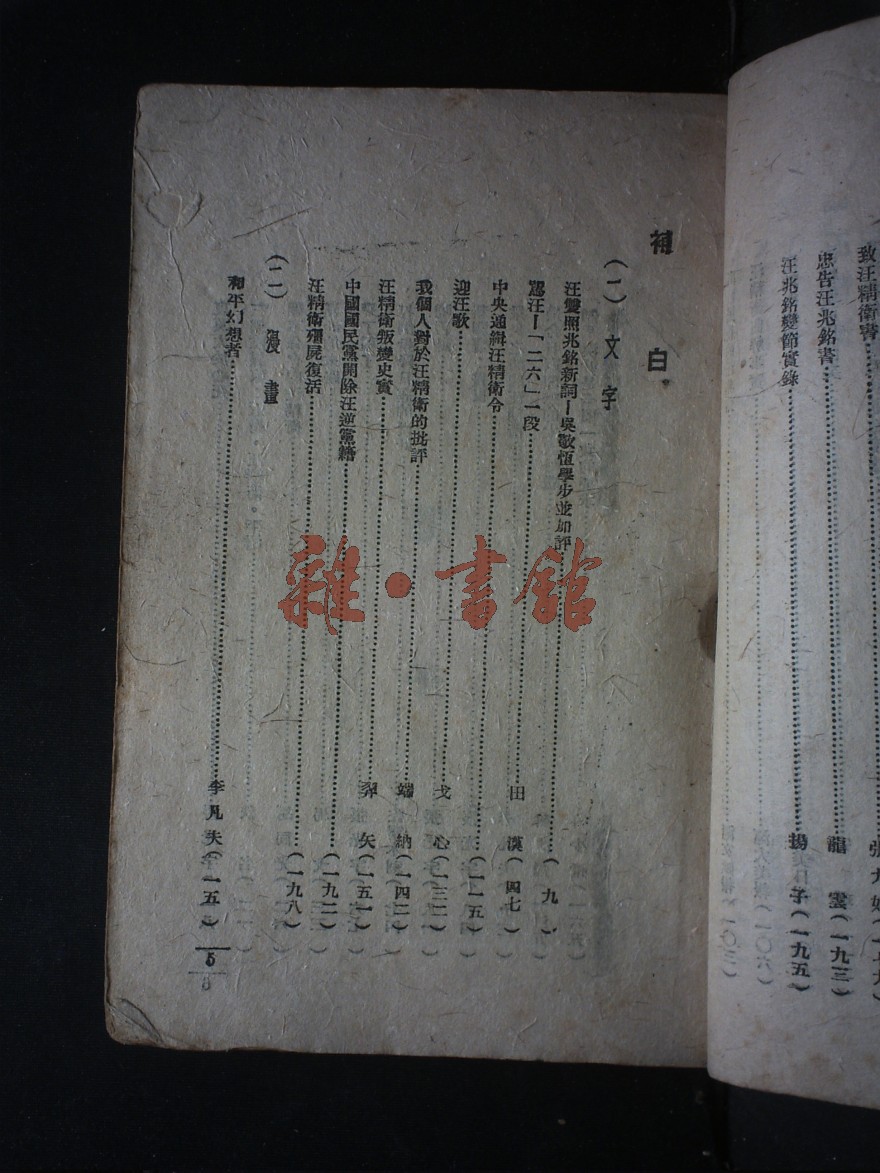 致汪精衛書
忠告汪兆銘書……龍雲(一九三)
汪兆銘變節實錄……揚子(一九五)
補白
(一)文字
汪雙照兆銘新詞—吳敬恆學步並加評……(九)
罵汪—「二六」一段……田漢(四七)
中央通緝汪精衛令……(一一五)
迎汪歌……戈心(一三二)
我個人對於汪精衛的批評……端納(一四二)
汪精衛叛變史實……羿矢(一五一)
中國國民黨開除汪逆黨籍……(一九二)
汪精衛殭屍復活……(一九八)
(二)漫畫
和平幻想者……李凡夫(一五)
5
雜·書館